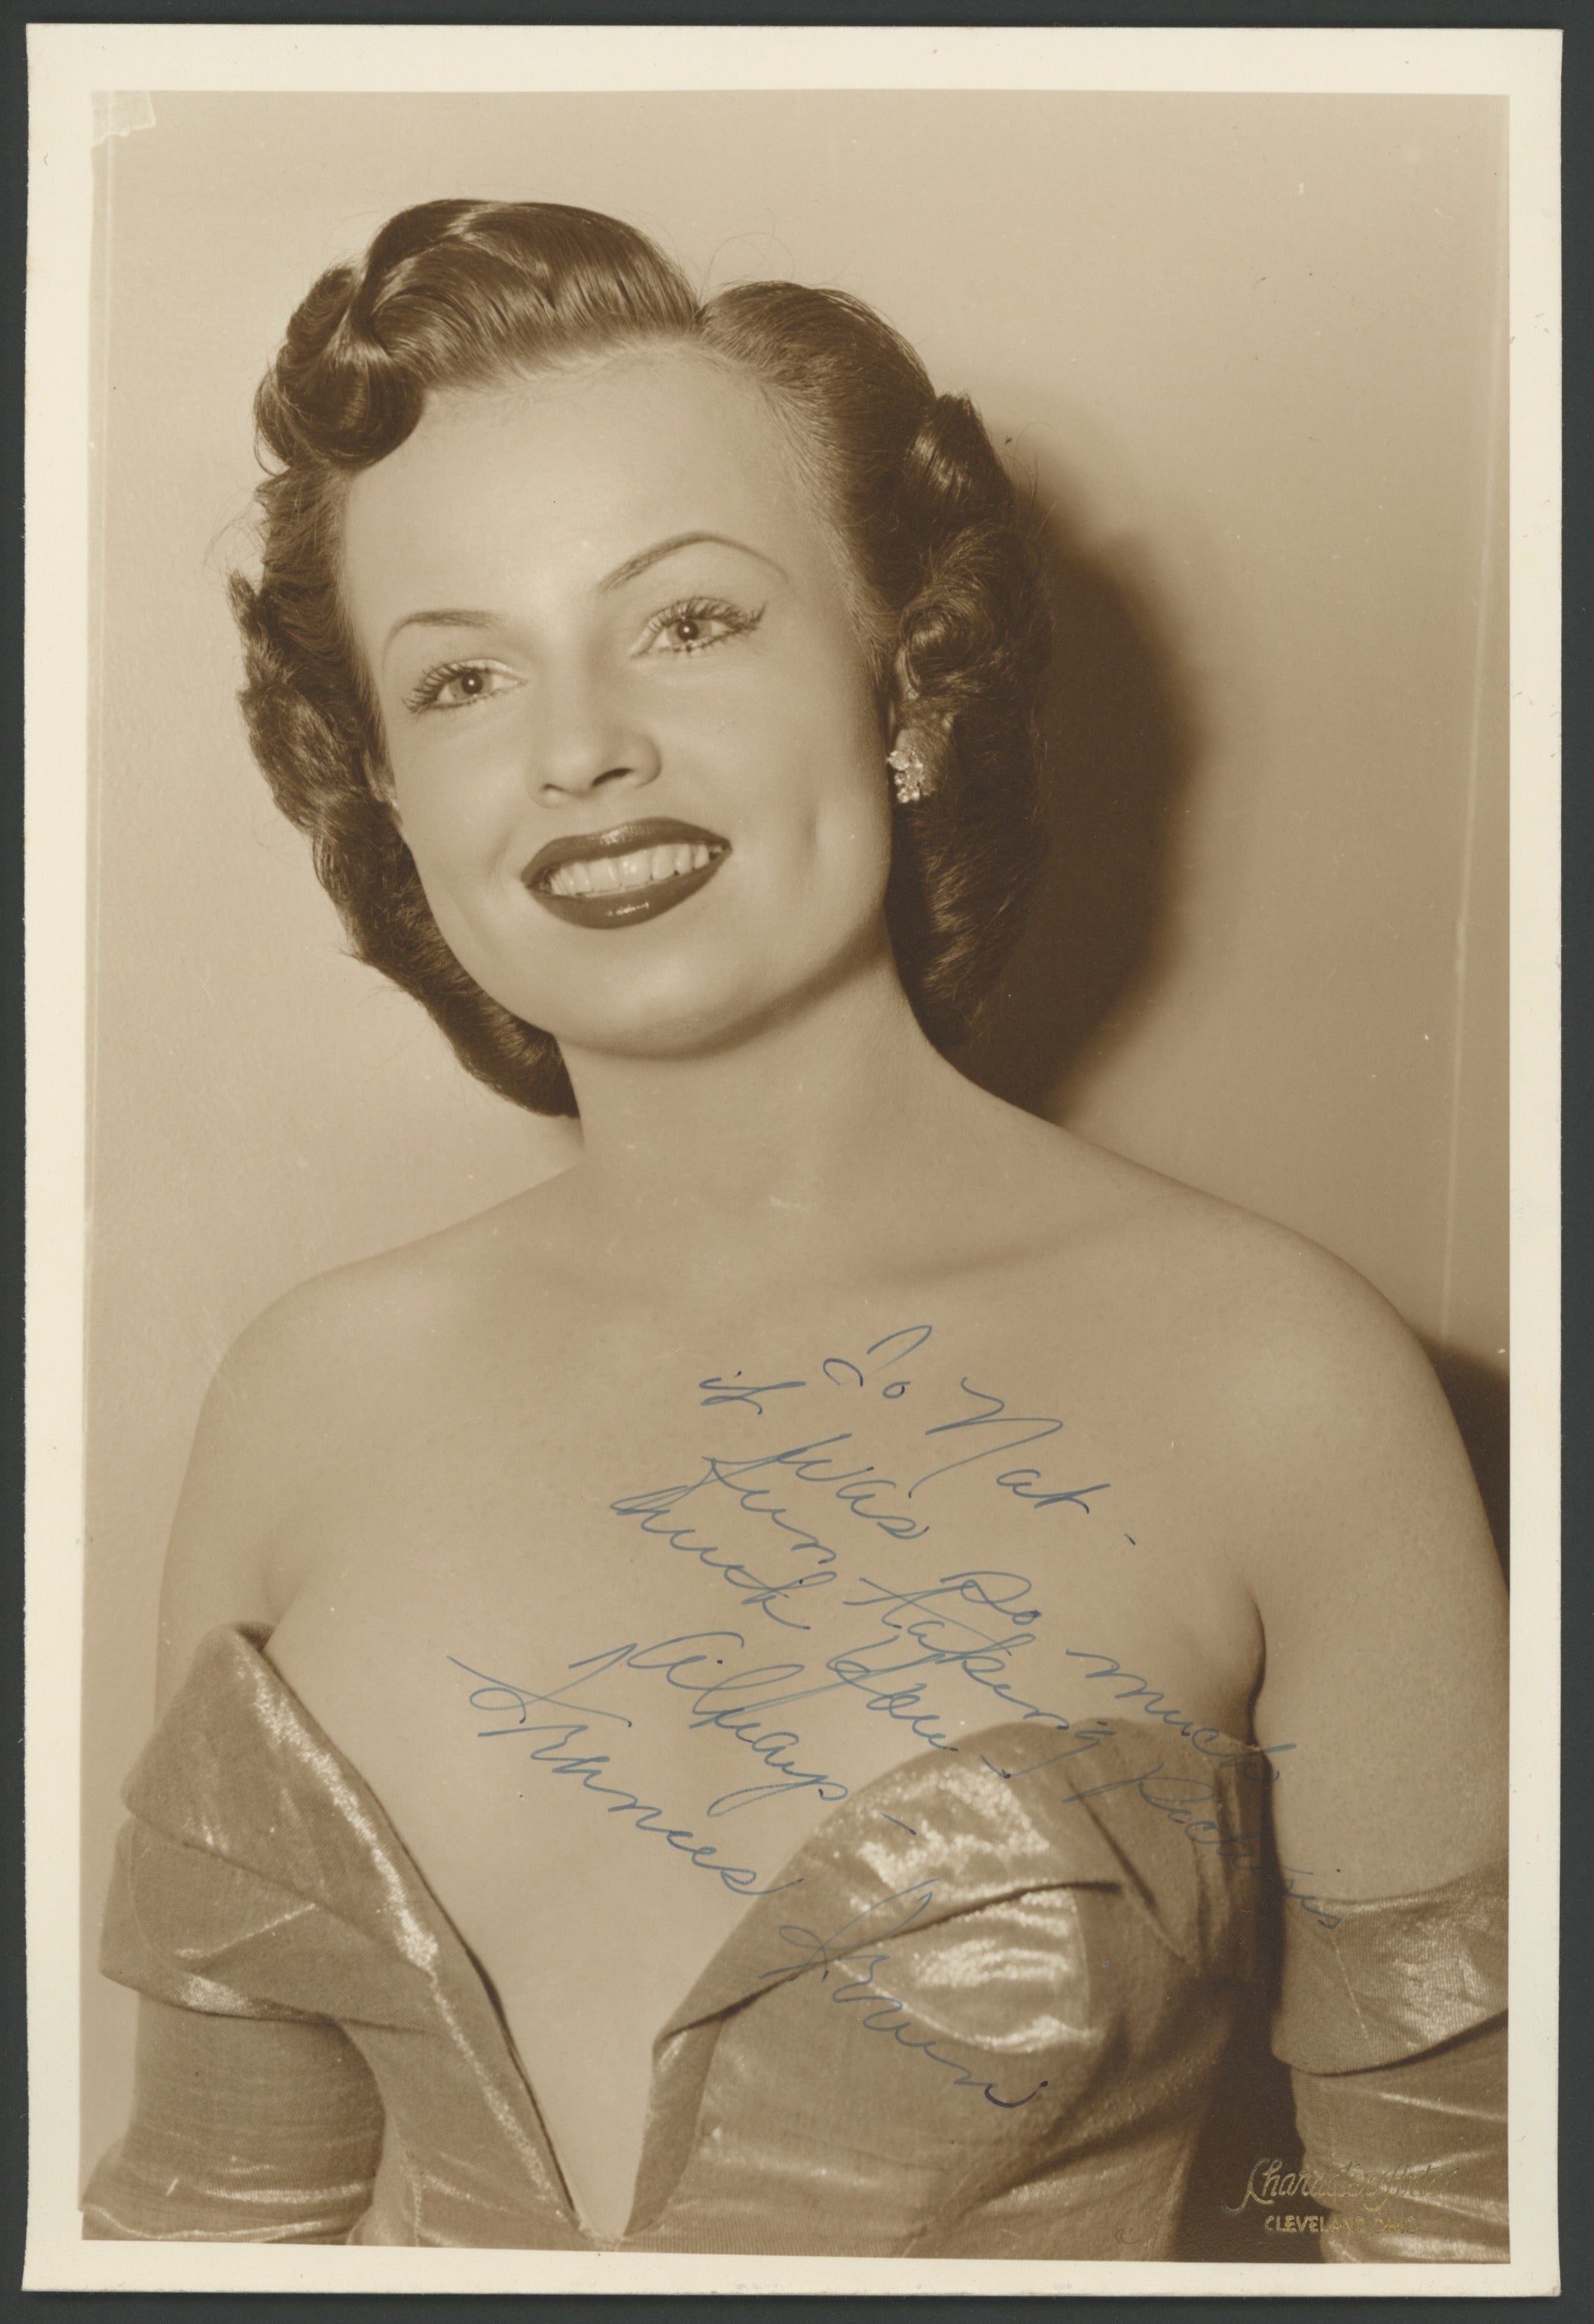 To Nat -
it was so much
fun taking pictures
Thank you -
Always -
Frances
CLEVELAND OHIO